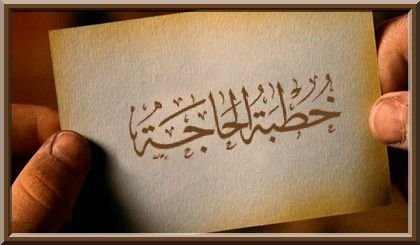 خُطْبَةُ الحَاجَةِ